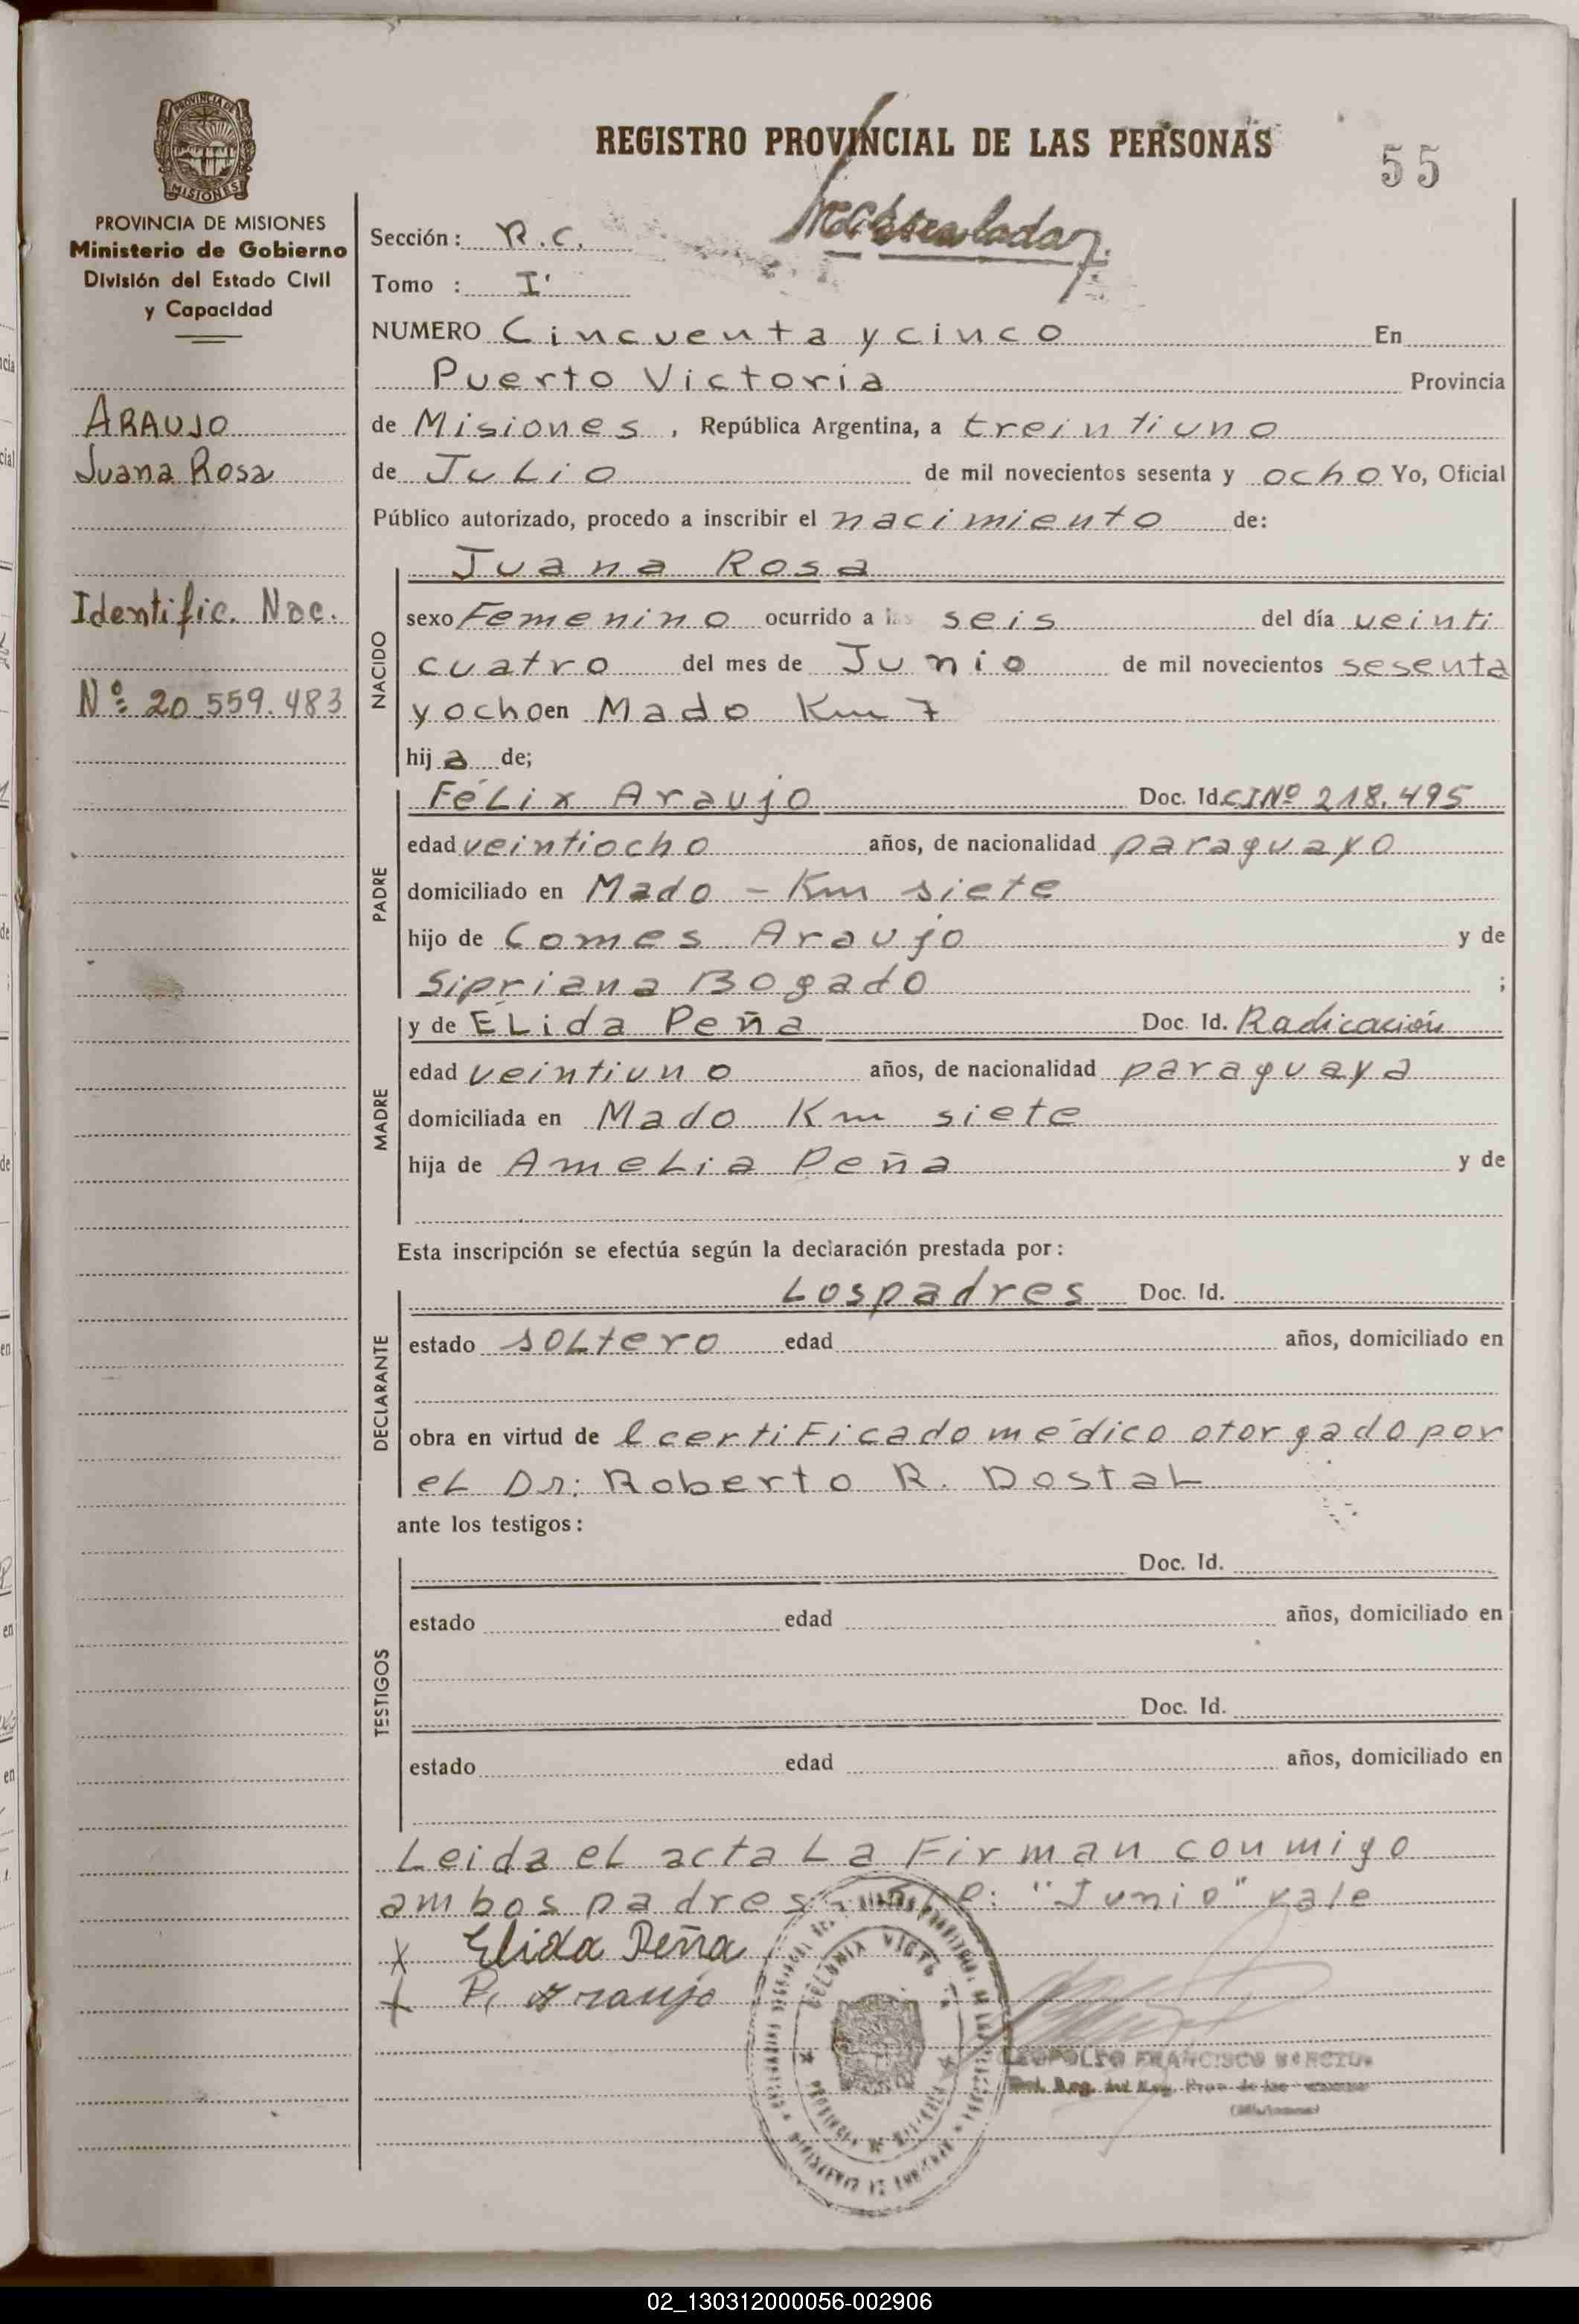 REGISTRO PROVINCIAL DE LAS PERSONAS
55
PROVINCIA DE MISIONES
PROVINCIA DE MISIONES
Ministerio de Gobierno
División del Estado Civil
y Capacidad
ARAUJO
Juana Rosa
Identific. Nac.
Nº 20.559.483
Sección: R.C.
Tomo : I
NUMERO Cincuenta y cinco En
Puerto Victoria Provincia
de Misiones, República Argentina, a treintiuno
de Julio de mil novecientos sesenta y ocho Yo, Oficial
Público autorizado, procedo a inscribir el nacimiento de:
Juana Rosa
NACIDO
sexo Femenino ocurrido a las seis del día veinti
cuatro del mes de Junio de mil novecientos sesenta
y ocho en Mado Km 7
hij a de;
PADRE
Félix Araujo Doc. Id. CI Nº 218.495
edad veintiocho años, de nacionalidad paraguayo
domiciliado en Mado - Km siete
hijo de Comes Araujo y de
Sipriana Bogado ;
MADRE
y de ELida Peña Doc. Id. Radicación
edad veintiuno años, de nacionalidad paraguaya
domiciliada en Mado Km siete
hija de Amelia Peña y de
Esta inscripción se efectúa según la declaración prestada por:
DECLARANTE
Los padres Doc. Id.
estado soltero edad años, domiciliado en
obra en virtud de l certificado médico otorgado por
el Dr: Roberto R. Dostal
ante los testigos:
TESTIGOS
Doc. Id.
estado edad años, domiciliado en
Doc. Id.
estado edad años, domiciliado en
Leida el acta La Firman conmigo
ambos padres "Junio" vale
x Elida Peña
x Araujo
COLONIA
LEOPOLDO FRANCISCO
02_130312000056-002906